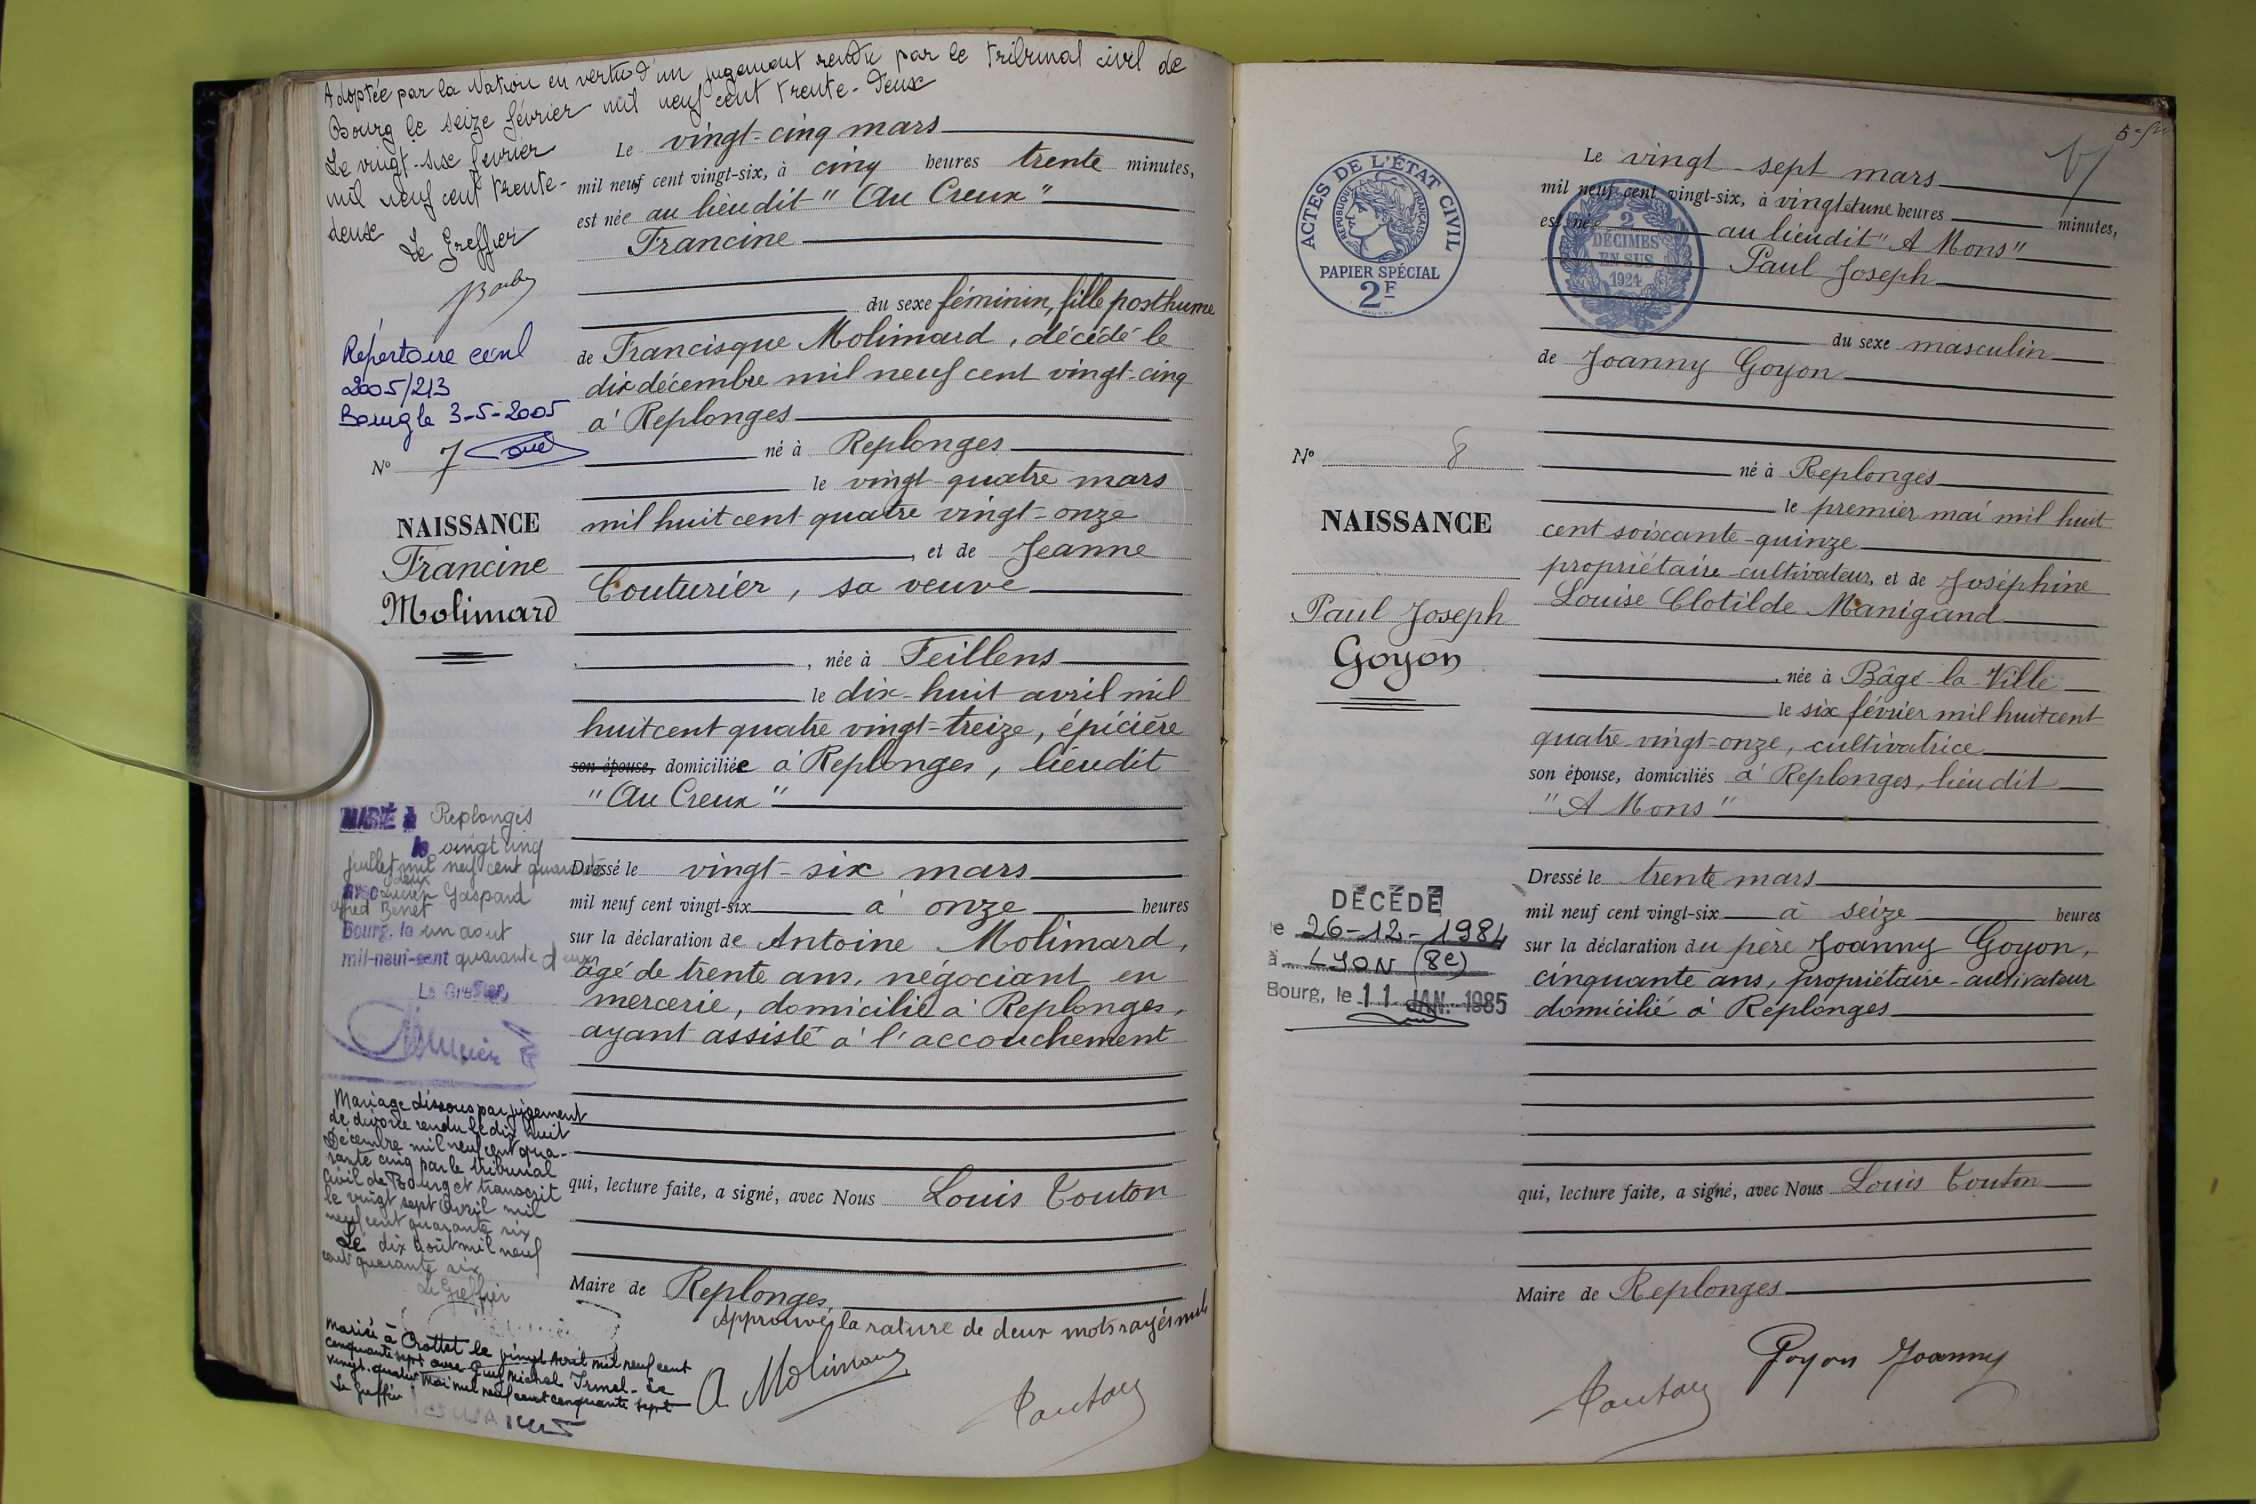 Adoptée par la Nation en vertu d'un jugement rendu par le tribunal civil de
Bourg le seize février mil neuf cent trente-deux
Le vingt-six février
mil neuf cent trente-
deux
Le Greffier
Répertoire civil
2005/213
Bourg le 3-5-2005
N° 7
NAISSANCE
Francine
Molimard
MARIÉ à Replonges
le vingt cinq
juillet mil neuf cent quarante
deux
avec Lucien Gaspard
Alfred
Bourg, le un aout
mil-neuf-cent quarante deux
Le Greffier
Mariage dissous par jugement
de divorce rendu le dix huit
Décembre mil neuf cent qua-
rante cinq par le tribunal
Civil de Bourg et transcrit
le vingt sept Avril mil
neuf cent quarante six
Le dix août mil neuf
cent quarante six
Le Greffier
Mariée à Crottet le vingt Avril mil neuf cent
cinquante sept avec Guy Michel Le
vingt-quatre Mai mil neuf cent cinquante sept
Le Greffier
Le vingt-cinq mars
mil neuf cent vingt-six, à cinq heures trente minutes,
est née au lieudit "Au Creux"
Francine
du sexe féminin, fille posthume
de Francisque Molimard, décédé le
dix décembre mil neuf cent vingt-cinq
à Replonges
né à Replonges
le vingt-quatre mars
mil huit cent quatre vingt-onze
, et de Jeanne
Couturier, sa veuve
, née à Feillens
le dix-huit avril mil
huit cent quatre vingt-treize, épicière
son épouse, domiciliée à Replonges, lieudit
"Au Creux"
Dressé le vingt-six mars
mil neuf cent vingt-six à onze heures
sur la déclaration de Antoine Molimard,
âgé de trente ans, négociant en
mercerie, domicilié à Replonges,
ayant assisté à l'accouchement
qui, lecture faite, a signé, avec Nous Louis Touton
Maire de Replonges.
Approuvé la rature de deux mots rayés nuls
A Molimard
Touton
5
ACTES DE L'ÉTAT CIVIL
RÉPUBLIQUE FRANÇAISE
PAPIER SPÉCIAL
2F
2
DÉCIMES
EN SUS
1924
N° 8
NAISSANCE
Paul Joseph
Goyon
DÉCÉDÉ
le 26-12-1984
à LYON (8e)
Bourg, le 11 JAN. 1985
Le vingt-sept mars
mil neuf cent vingt-six, à vingt et une heures minutes,
est né au lieudit "A Mons"
Paul Joseph
du sexe masculin
de Joanny Goyon
né à Replonges
le premier mai mil huit
cent soixante-quinze
propriétaire-cultivateur, et de Joséphine
Louise Clotilde Manigand
, née à Bâgé-la-Ville
le six février mil huit cent
quatre vingt-onze, cultivatrice
son épouse, domiciliés à Replonges, lieudit
"A Mons"
Dressé le trente mars
mil neuf cent vingt-six à seize heures
sur la déclaration du père Joanny Goyon,
cinquante ans, propriétaire-cultivateur
domicilié à Replonges
qui, lecture faite, a signé, avec Nous Louis Touton
Maire de Replonges
Goyon Joanny
Touton